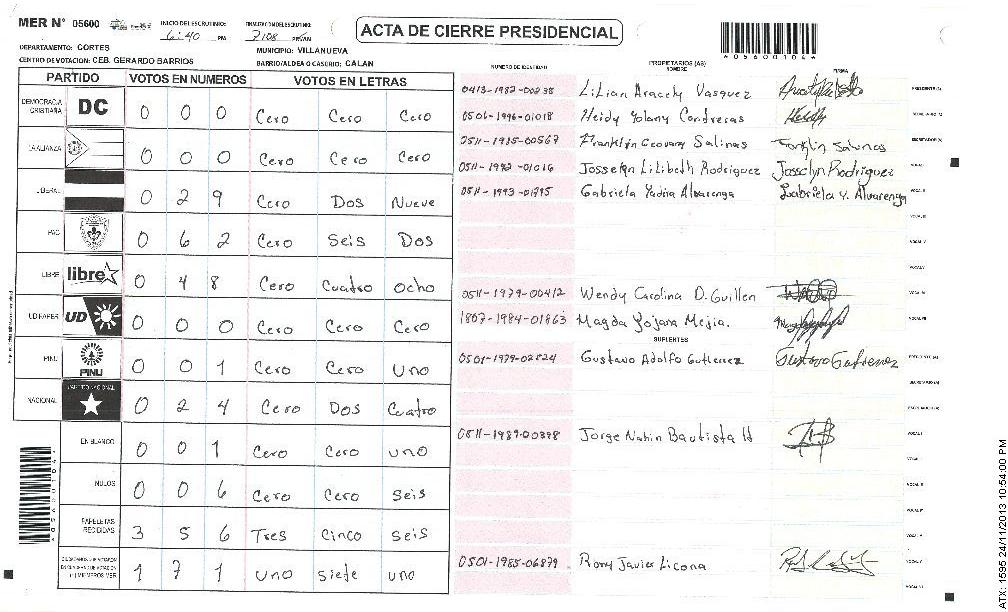 MER N° 05600
INICIO DEL ESCRUTINIO: 6:40 PM
FINALIZACION DEL ESCRUTINIO: 7:08
ACTA DE CIERRE PRESIDENCIAL
*05600104*
DEPARTAMENTO: CORTES
MUNICIPIO: VILLANUEVA
CENTRO DE VOTACION: CEB. GERARDO BARRIOS
BARRIO/ALDEA O CASERIO: CALAN
PARTIDO VOTOS EN NUMEROS VOTOS EN LETRAS
DEMOCRACIA CRISTIANA DC 0 0 0 Cero Cero Cero
LA ALIANZA 0 0 0 Cero Cero Cero
LIBERAL 0 2 9 Cero Dos Nueve
PAC 0 6 2 Cero Seis Dos
LIBRE libre 0 4 8 Cero Cuatro Ocho
UD FAPER UD 0 0 0 Cero Cero Cero
PINU PINU 0 0 1 Cero Cero Uno
NACIONAL PARTIDO NACIONAL 0 2 4 Cero Dos Cuatro
EN BLANCO 0 0 1 Cero Cero uno
NULOS 0 0 6 Cero Cero Seis
PAPELETAS RECIBIDAS 3 5 6 Tres Cinco Seis
CIUDADANOS QUE VOTARON EN CUADERNO DE VOTACION (+) MIEMBROS MER 1 7 1 uno Siete uno
NUMERO DE IDENTIDAD PROPIETARIOS (AS) NOMBRE FIRMA
0413-1982-00238 Lilian Aracely Vasquez PRESIDENTE (A)
0506-1996-01018 Heidy Yolany Contreras Heidy SECRETARIO (A)
0511-1985-00567 Franklin Geovany Salinas Franklin Salinas ESCRUTADOR (A)
0511-1992-01016 Josselyn Lilibeth Rodriguez Josselyn Rodriguez VOCAL I
0511-1993-01295 Gabriela Yadira Alvarenga Gabriela Y. Alvarenga VOCAL II
VOCAL III
VOCAL IV
VOCAL V
0511-1979-00412 Wendy Carolina D. Guillen VOCAL VI
1807-1984-01863 Magda Yojana Mejia. VOCAL VII
SUPLENTES
0501-1979-02824 Gustavo Adolfo Gutierrez Gustavo Gutierrez PRESIDENTE (A)
SECRETARIO (A)
ESCRUTADOR (A)
0511-1989-00398 Jorge Nahin Bautista H VOCAL I
VOCAL II
VOCAL III
VOCAL IV
0501-1985-06879 Rony Javier Licona VOCAL V
VOCAL VI
ATX: 1595 24/11/2013 10:54:00 PM